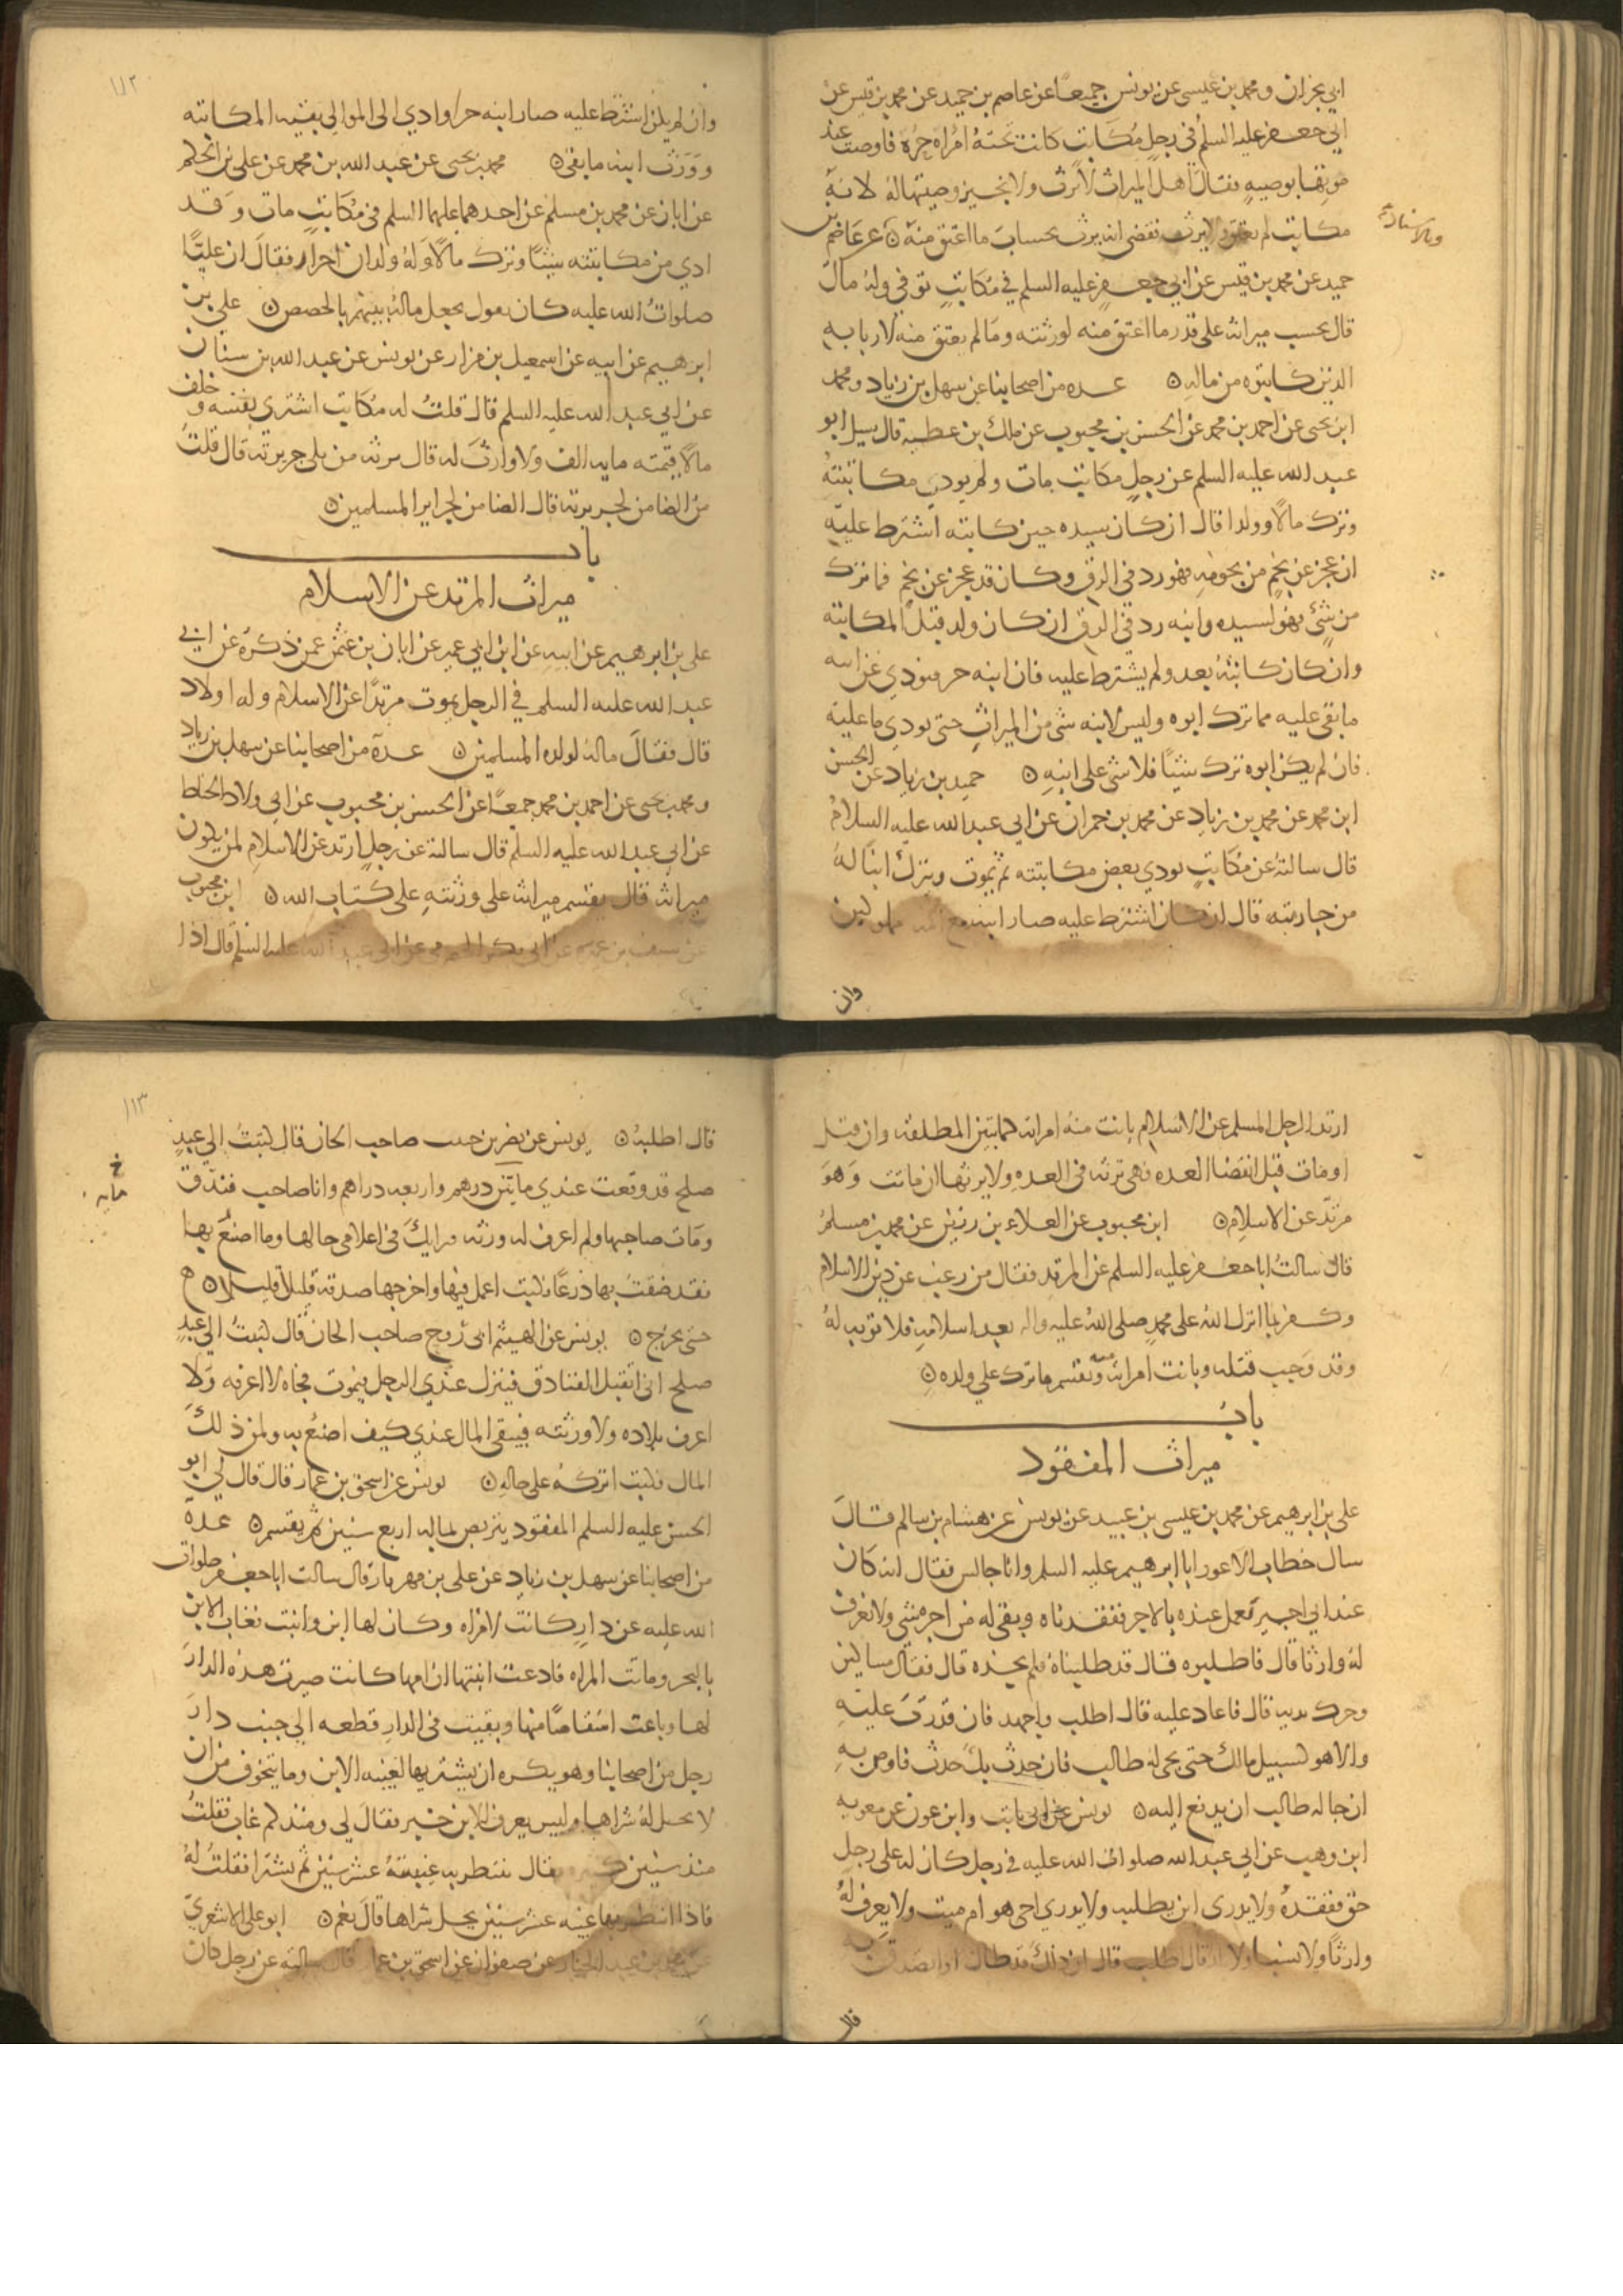 ابي نجران ومحمد بن عيسى عن يونس جميعا عن عاصم بن حميد عن محمد بن قيس عن
ابي جعفر عليه السلم في رجل مكاتب كانت تحته امراة حرة فاوصت عند
موتها بوصية فقال اهل الميراث لا نجيز وصيتها له لانه
مكاتب لم يعتق ولا يرث فقضى انه يرث بحساب ما اعتق منه ن عن عاصم بن
وبالاسناد
حميد عن محمد بن قيس عن ابي جعفر عليه السلم في مكاتب توفي وله مال
قال يحسب ميراثه على قدر ما اعتق منه لورثته وما لم يعتق منه لاربابه
الذين كاتبوه من ماله ن عده من اصحابنا عن سهل بن زياد ومحمد
ابن يحيى عن احمد بن محمد عن الحسن بن محبوب عن ملك بن عطيه قال سيل ابو
عبد الله عليه السلم عن رجل مكاتب مات ولم يودي مكاتبته
وترك مالا وولدا قال ان كان سيده حين كاتبه اشترط عليه
ان عجز عن نجم من نجومه فهو رد في الرق وكان قد عجز عن نجم فما ترك
من شئ فهو لسيده وابنه رد في الرق ان كان ولد قبل المكاتبة
وان كان كاتبه بعد ولم يشترط عليه فان ابنه حر فيودي عن ابيه
ما بقي عليه مما ترك ابوه وليس لابنه شى من الميراث حتى يودي ما عليه
فان لم يكن ابوه ترك شيئا فلا شى على ابنه ن حميد بن زياد عن الحسن
ابن محمد عن محمد بن زياد عن محمد بن حمران عن ابي عبد الله عليه السلام
قال سالته عن مكاتب يودي بعض مكاتبته ثم يموت ويترك ابنا له
من جاريته قال ان كان اشترط عليه صار ابنه مع امه مملوكين
وان
١١٢
وان لم يكن اشترط عليه صار ابنه حرا وادي الى الموالي بقيه المكاتبه
وورث ابنه ما بقى ن محمد بن يحيى عن عبد الله بن محمد عن على بن الحكم
عن ابان عن محمد بن مسلم عن احدهما عليهما السلم في مكاتب مات وقد
ادي من مكاتبته شيئا وترك مالا وله ولدان احرار فقال ان عليا
صلوات الله عليه كان يقول يجعل ماله بينهم بالحصص ن علي بن
ابرهيم عن ابيه عن اسمعيل بن مرار عن يونس عن عبد الله بن سنان
عن ابي عبد الله عليه السلم قال قلت له مكاتب اشترى نفسه وخلف
مالا قيمته مايه الف ولا وارث له قال يرثه من يلى جريرته قال قلت
من الضامن لجريرته قال الضامن لجراير المسلمين ن
باب
ميراث المرتد عن الاسلام
على بن ابرهيم عن ابيه عن ابن ابي عمير عن ابان بن عثمن عمن ذكره عن ابي
عبد الله عليه السلم في الرجل يموت مرتدا عن الاسلام وله اولاد
قال فقال ماله لولده المسلمين ن عدة من اصحابنا عن سهل بن زياد
ومحمد بن يحيى عن احمد بن محمد جميعا عن الحسن بن محبوب عن ابي ولاد الحناط
عن ابي عبد الله عليه السلم قال سالته عن رجل ارتد عن الاسلام لمن يكون
ميراثه قال يقسم ميراثه على ورثته على كتاب الله ن ابن محبوب
عن سيف بن عميره عن ابي بكر الحضرمي عن ابي عبد الله عليه السلم قال اذا
ارتد الرجل المسلم عن الاسلام بانت منه امراته كما تبين المطلقه وان قتل
او مات قبل انقضا العده فهى ترثه في العده ولا يرثها ان ماتت وهو
مرتد عن الاسلام ن ابن محبوب عن العلاء بن رزين عن محمد بن مسلم
قال سالت ابا جعفر عليه السلم عن المرتد فقال من رغب عن دين الاسلام
وكفر بما انزل الله على محمد صلى الله عليه واله بعد اسلامه فلا توبه له
وقد وجب قتله وبانت امراته منه ويقسم ما ترك على ولده ن
باب
ميراث المفقود
على بن ابرهيم عن محمد بن عيسى بن عبيد عن يونس عن هشام بن سالم قال
سال خطاب الاعور ابا ابرهيم عليه السلم وانا جالس فقال انه كان
عند ابي اجير يعمل عنده بالاجر ففقدناه وبقي له من اجره شى ولا نعرف
له وارثا قال فاطلبوه قال قد طلبناه فلم نجده قال فقال مساكين
وحرك يديه قال فاعاد عليه قال اطلب واجهد فان قدرت عليه
والا هو كسبيل مالك حتى يجى له طالب فان حدث بك حدث فاوص به
ان جا له طالب ان يدفع اليه ن يونس عن ابن ثابت وابن عون عن معويه
ابن وهب عن ابي عبد الله صلوات الله عليه في رجل كان له على رجل
حق ففقده ولا يدرى اين يطلبه ولا يدري احي هو ام ميت ولا يعرف له
وارثا ولا نسبا ولا قال اطلب قال ان ذلك قد طال فاتصدق به
قال
١١٣
قال اطلبه ن يونس عن نصر بن حبيب صاحب الخان قال كتبت الى عبد
صلح قد وقعت عندي مايتين درهم واربعه دراهم وانا صاحب فندق
خ
مايه
ومات صاحبها ولم اعرف له ورثه فرايك في اعلامي حالها وما اصنع بها
فقد ضقت بها ذرعا فكتب اعمل فيها واخرجها صدقه قليلا قليلا ن
حتى يخرج ن يونس عن الهيثم ابي روح صاحب الخان قال كتبت الى عبد
صلح اني اتقبل الفنادق فينزل عندي الرجل فيموت فجاه لا اعرفه ولا
اعرف بلاده ولا ورثته فيبقى المال عندي كيف اصنع به ولمن ذلك
المال فكتب اتركه على حاله ن يونس عن اسحق بن عمار قال قال لي ابو
الحسن عليه السلم المفقود يتربص بماله اربع سنين ثم يقسم ن عدة
من اصحابنا عن سهل بن زياد عن على بن مهزيار قال سالت ابا جعفر صلوات
الله عليه عن دار كانت لامراه وكان لها ابن وابنت فغاب الابن
بالبحر وماتت المراه فادعت ابنتها ان امها كانت صيرت هذه الدار
لها وباعت اشقاصا منها وبقيت في الدار قطعه الى جنب دار
رجل من اصحابنا وهو يكره ان يشتريها لغيبه الابن وما يتخوف من ان
لا يحل له شراها وليس يعرف للابن خبر فقال لي ومنذ كم غاب فقلت
منذ سنين كثيره فقال ينتظر به غيبته عشر سنين ثم يشترا فقلت له
فاذا انتظر بها غيبه عشر سنين يحل شراها قال نعم ن ابو على الاشعري
عن محمد بن عبد الجبار عن صفوان عن اسحق بن عمار قال سالته عن رجل كان